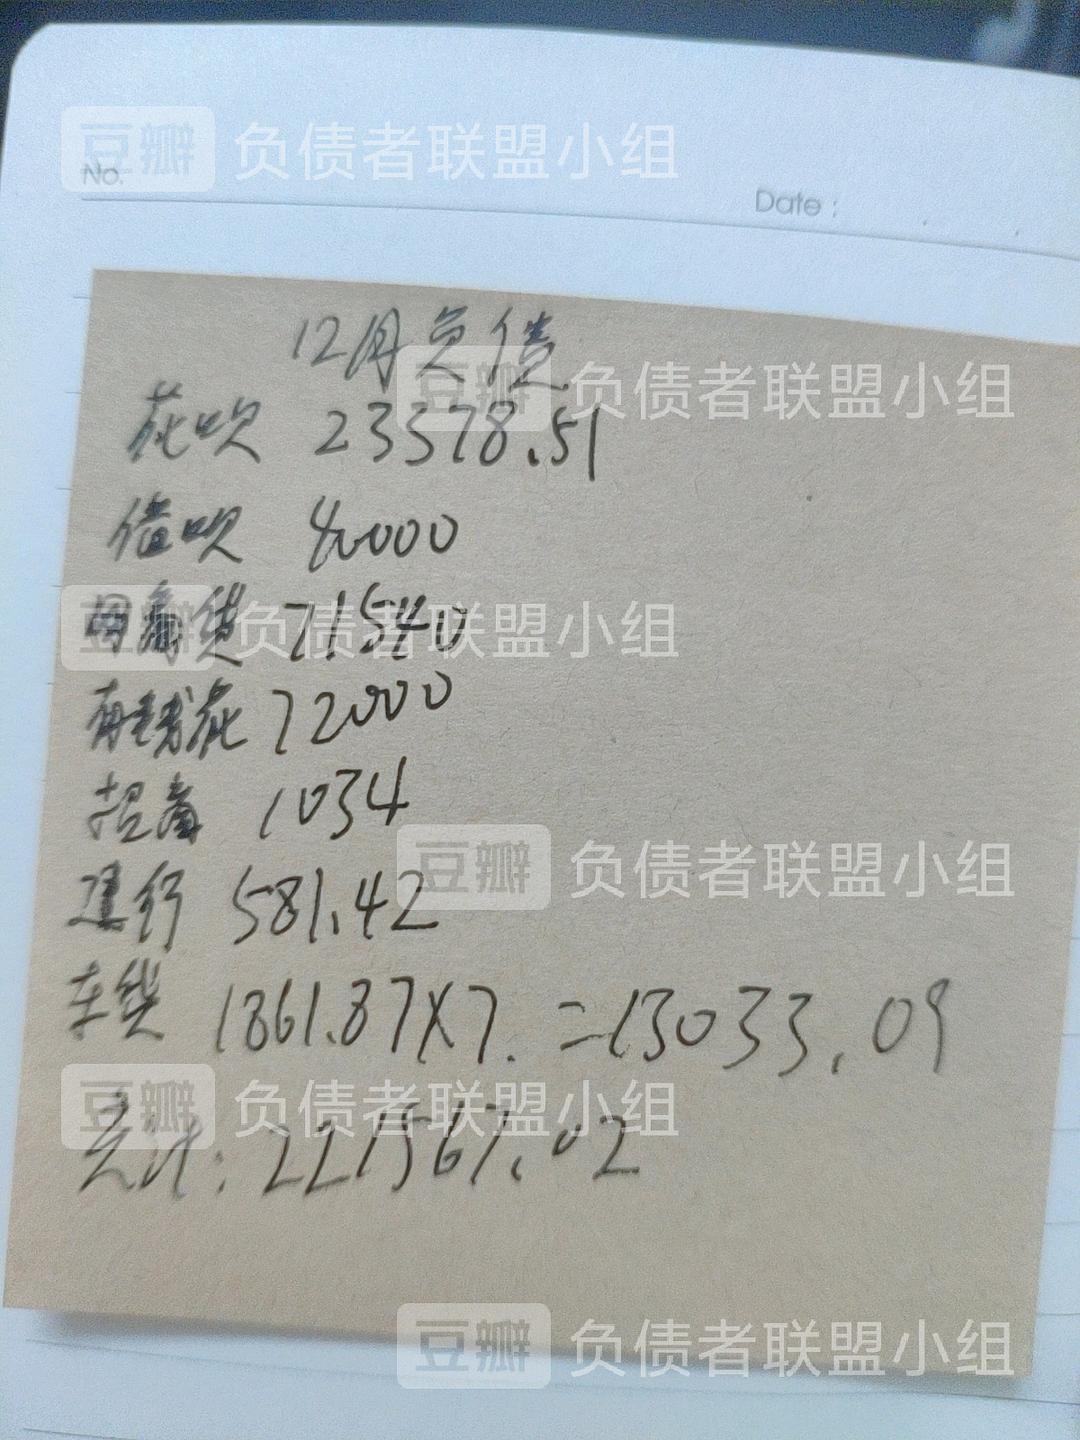 豆瓣 负债者联盟小组
No.
Date :
12月负债
豆瓣 负债者联盟小组
花呗 23378.51
借呗 40000
网商贷 71540
豆瓣 负债者联盟小组
有钱花 72000
招商 1034
豆瓣 负债者联盟小组
建行 581.42
车贷 1861.87X7. =13033.09
豆瓣 负债者联盟小组
总计: 221567.02
豆瓣 负债者联盟小组